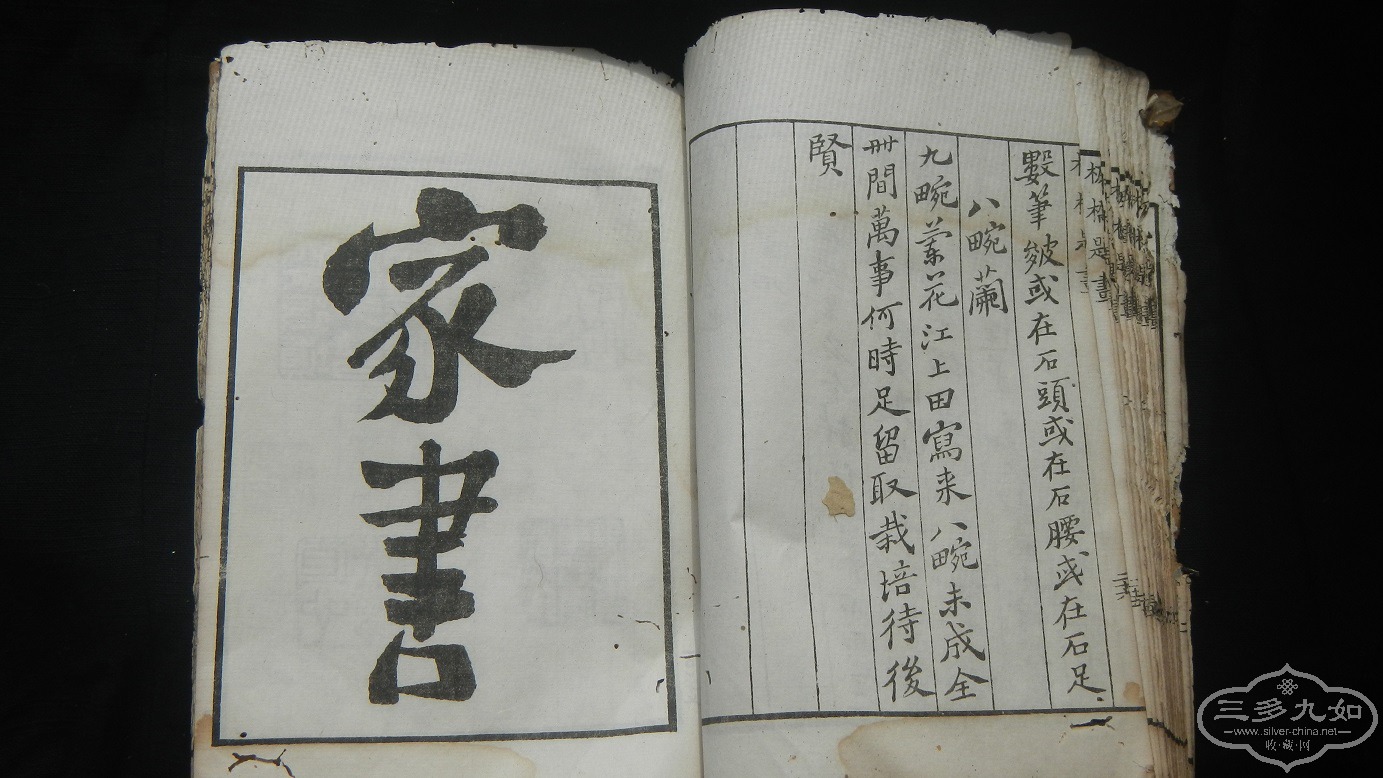 數筆皴或在石頭或在石腰或在石足
八畹蘭
九畹蘭花江上田寫来八畹未成全
世間萬事何時足留取栽培待後
賢
家書
板橋題畫
三多九如
www.silver-china.net
收·藏·网